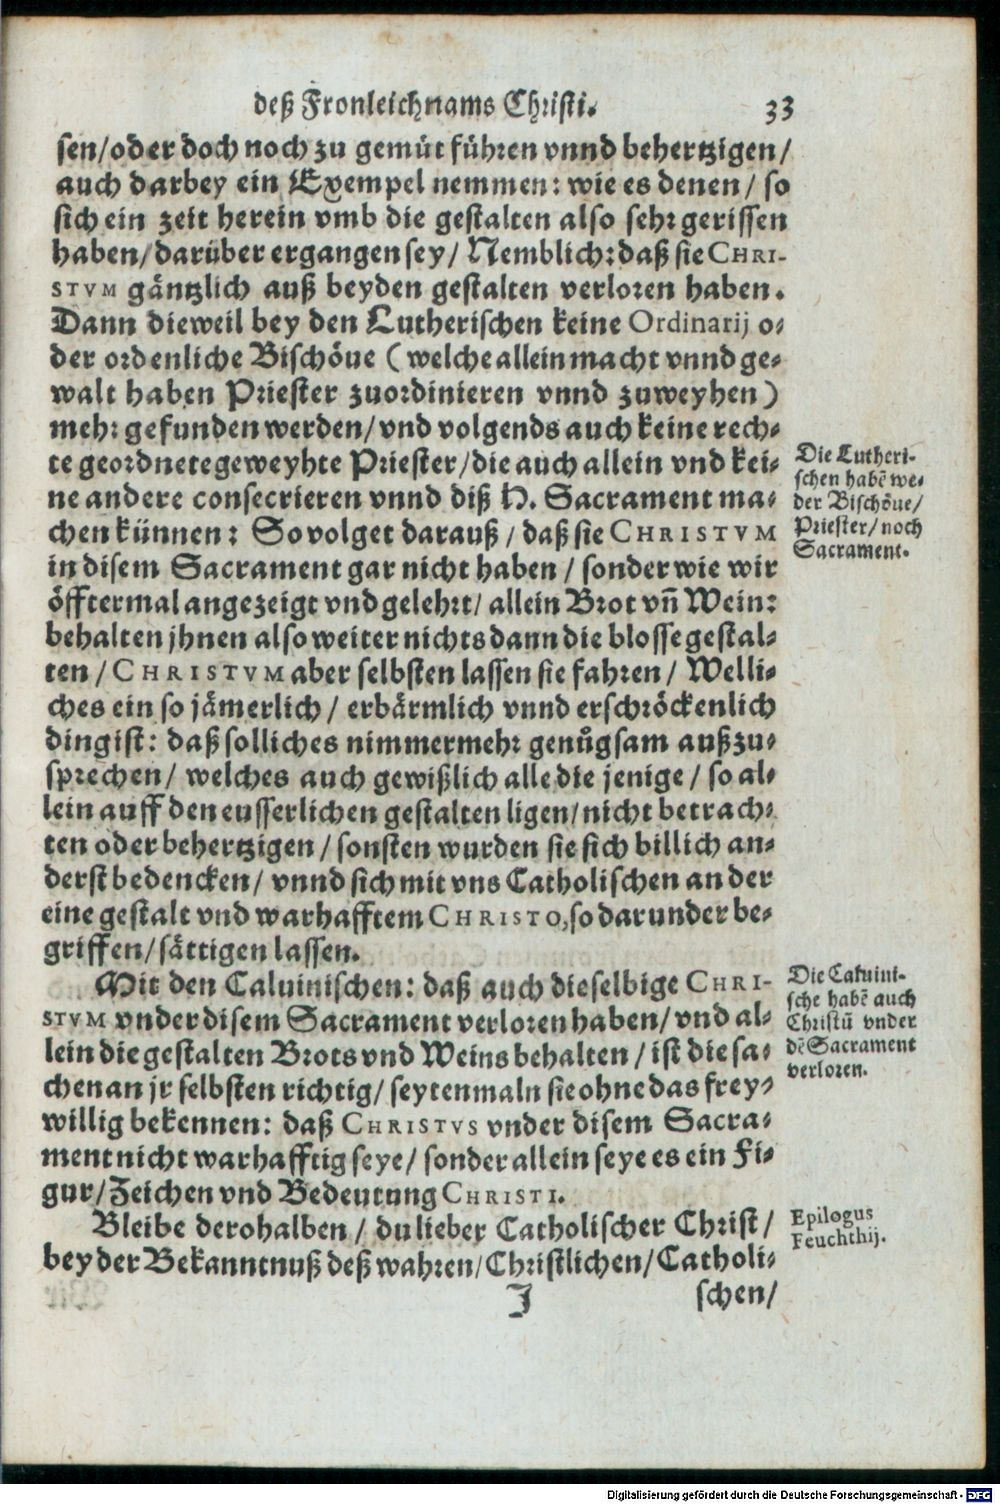 deß Fronleichnams Christi. 33
sen/oder doch noch zu gemüt führen vnnd behertzigen/
auch darbey ein Exempel nemmen: wie es denen/ so
sich ein zeit herein vmb die gestalten also sehr gerissen
haben/ darüber ergangen sey/ Nemblich: daß sie CHRI-
STVM gäntzlich auß beyden gestalten verloren haben.
Dann dieweil bey den Lutherischen keine Ordinarij o-
der ordenliche Bischöue (welche allein macht vnnd ge-
walt haben Priester zuordinieren vnnd zuweyhen)
mehr gefunden werden/ vnd volgends auch keine rech-
te geordnete geweyhte Priester/ die auch allein vnd kei-
ne andere consecrieren vnnd diß H. Sacrament ma-
chen künnen: So volget darauß/ daß sie CHRISTVM
in disem Sacrament gar nicht haben/ sonder wie wir
öfftermal angezeigt vnd gelehrt/ allein Brot vñ Wein:
behalten jhnen also weiter nichts dann die blosse gestal-
ten/ CHRISTVM aber selbsten lassen sie fahren/ Welli-
ches ein so jämerlich/ erbärmlich vnnd erschröckenlich
ding ist: daß solliches nimmermehr genůgsam außzu-
sprechen/ welches auch gewißlich alle die jenige/ so al-
lein auff den eusserlichen gestalten ligen/ nicht betrach-
ten oder behertzigen/ sonsten wurden sie sich billich an-
derst bedencken/ vnnd sich mit vns Catholischen an der
eine gestalt vnd warhafftem CHRISTO, so darunder be-
griffen/ sättigen lassen.
Die Lutheri-
schen habē we-
der Bischöue/
Priester/ noch
Sacrament.
Mit den Caluinischen: daß auch dieselbige CHRI-
STVM vnder disem Sacrament verloren haben/ vnd al-
lein die gestalten Brots vnd Weins behalten/ ist die sa-
chen an jr selbsten richtig/ seytenmaln sie ohne das frey-
willig bekennen: daß CHRISTVS vnder disem Sacra-
ment nicht warhafftig seye/ sonder allein seye es ein Fi-
gur/ Zeichen vnd Bedeutung CHRISTI.
Die Caluini-
sche habē auch
Christū vnder
dē Sacrament
verloren.
Bleibe derohalben/ du lieber Catholischer Christ/
bey der Bekanntnuß deß wahren/ Christlichen/ Catholi-
Epilogus
Feuchthij.
J schen/
Digitalisierung gefördert durch die Deutsche Forschungsgemeinschaft - DFG